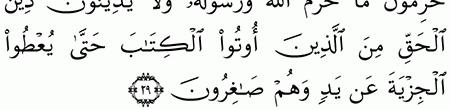 حَرَّمَ ٱللَّهُ وَرَسُولُهُۥ وَلَا يَدِينُونَ دِينَ
ٱلۡحَقِّ مِنَ ٱلَّذِينَ أُوتُواْ ٱلۡكِتَٰبَ حَتَّىٰ يُعۡطُواْ
ٱلۡجِزۡيَةَ عَن يَدٖ وَهُمۡ صَٰغِرُونَ ٢٩